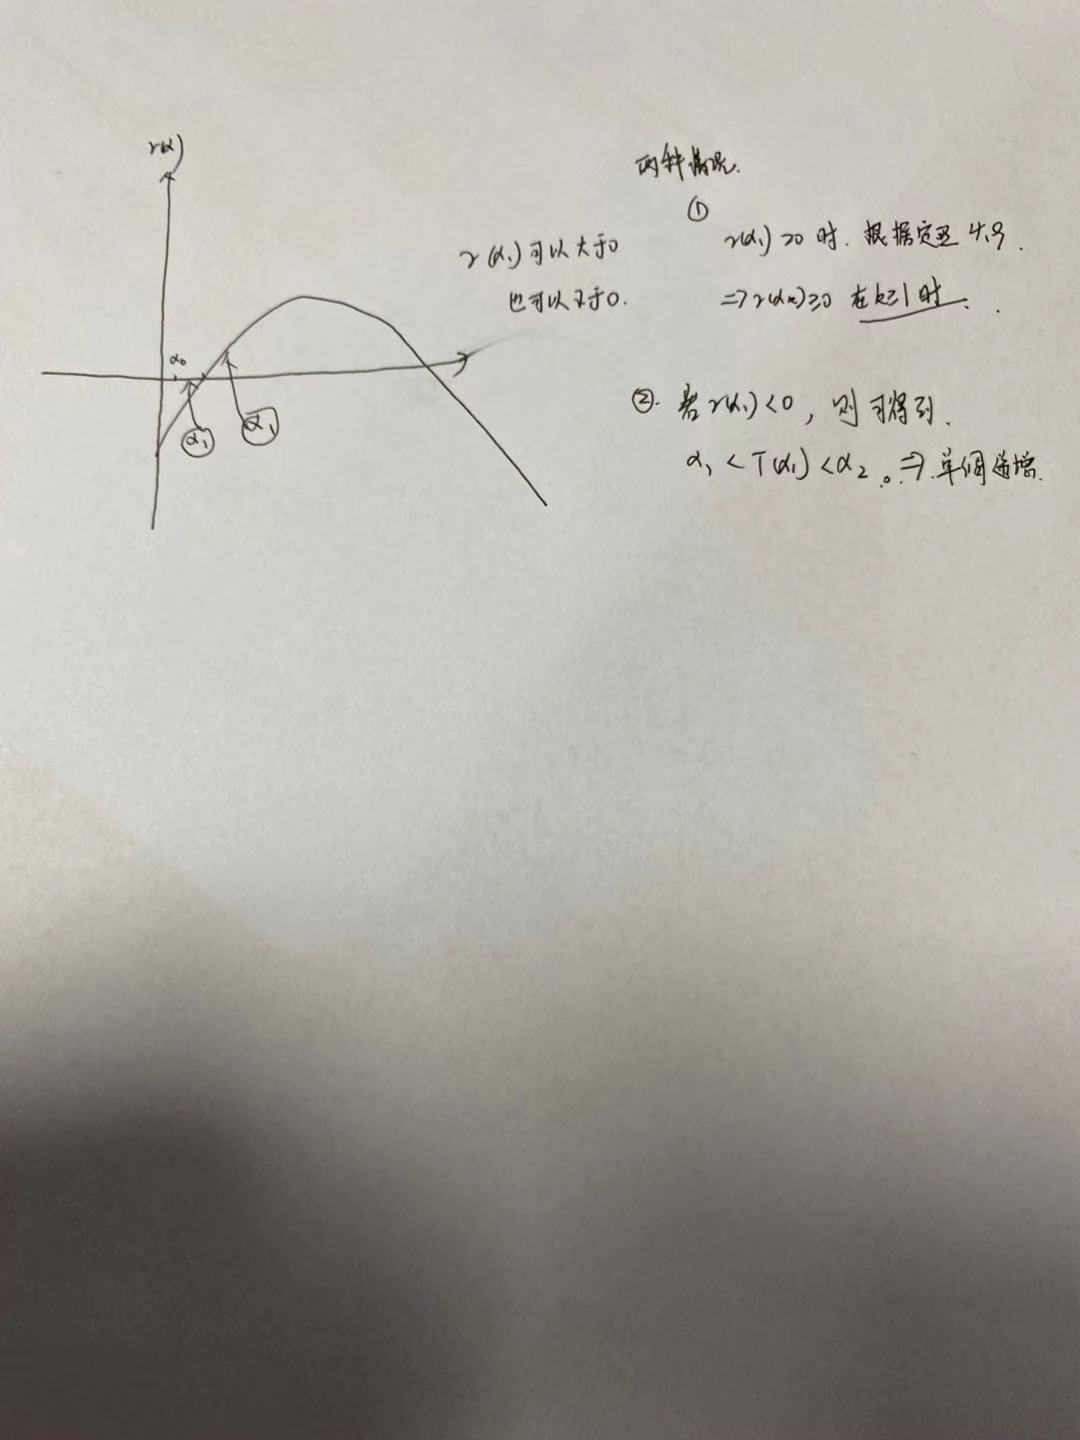 r(α)
α₀
α₁
α₁
r(α₁)可以大于0
也可以小于0.
两种情况.
①
r(α₁)>0时.根据定理4.9.
=>r(αₖ)≥0 在k≥1时.
②.若r(α₁)<0,则可得到.
α₁<T(α₁)<α₂。=>.单调递增.